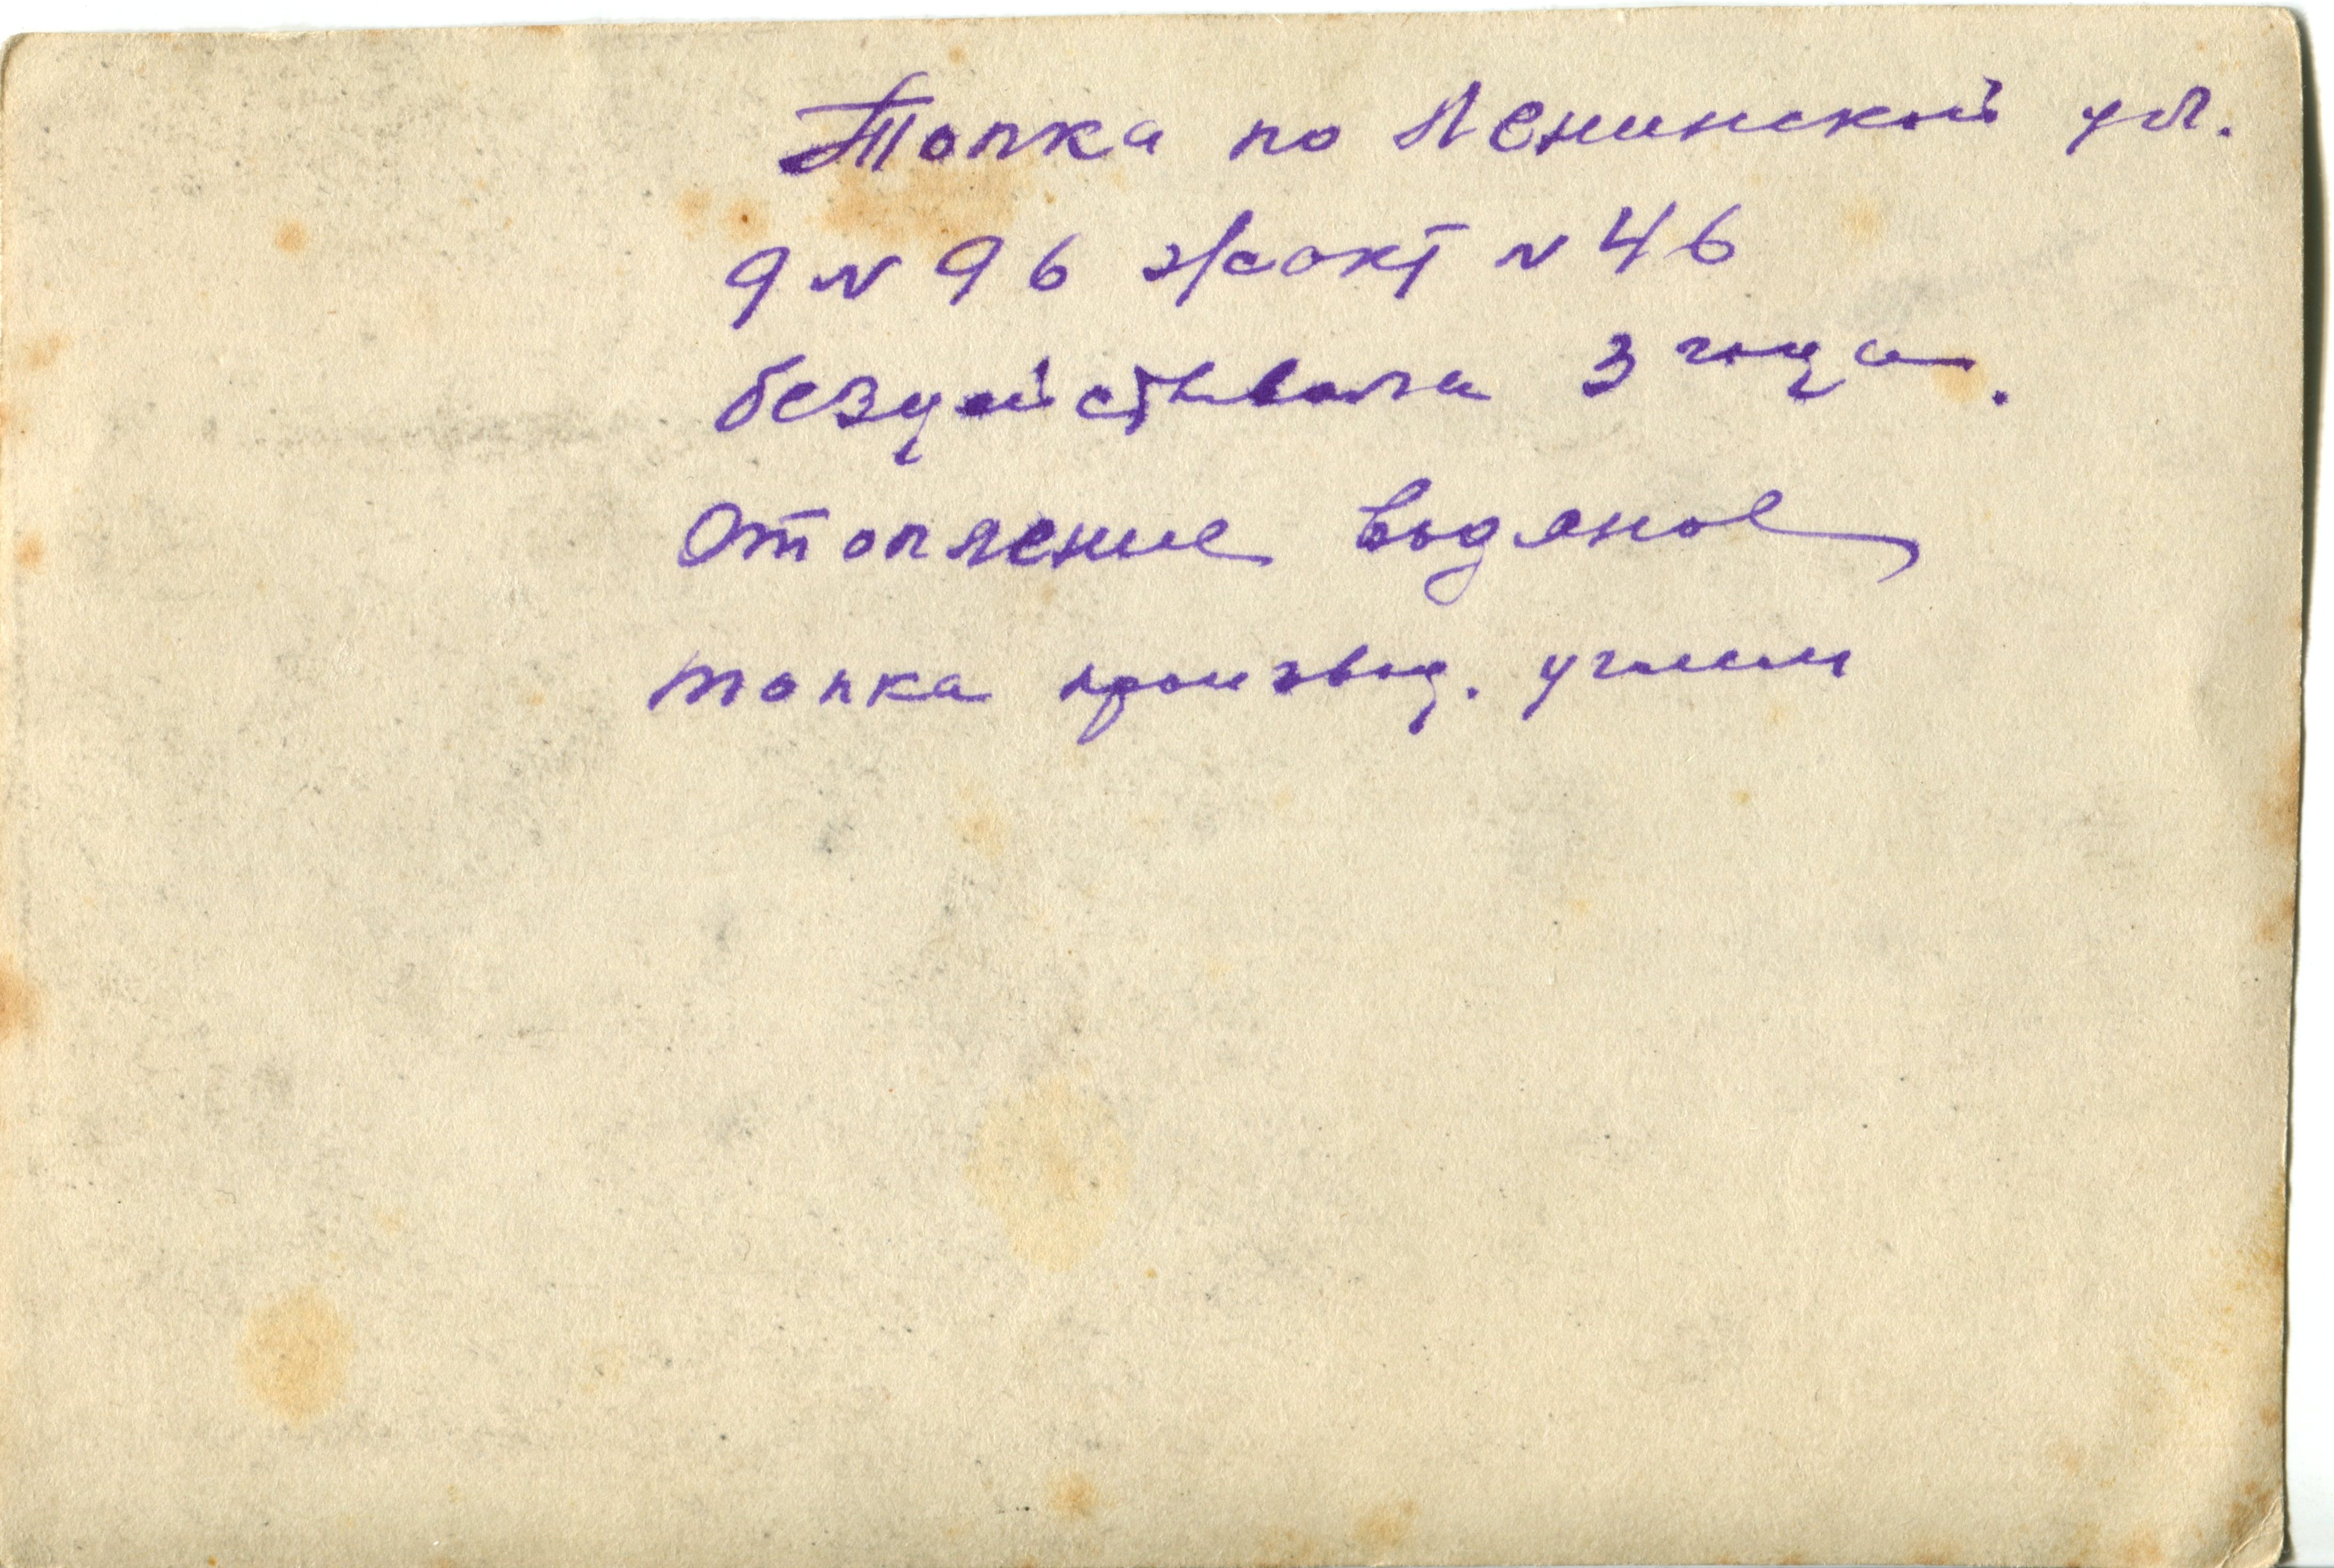 Топка по Ленинской ул.
д N 96 жакт N 46
бездействовала 3 года.
Отопление водяное
топка производ. углем